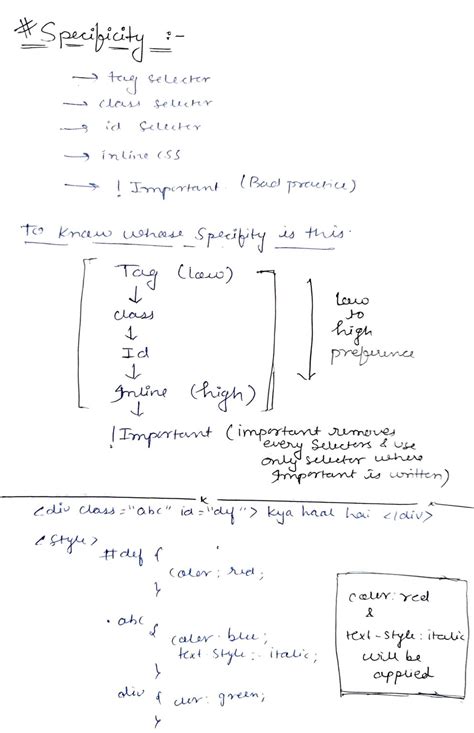 # Specificity :-
→ tag selector
→ class selector
→ id selector
→ inline CSS
→ ! Important (Bad practice)
To know whose Specifity is this.
Tag (low)
↓
class
↓
Id
↓
Inline (high)
↓
low
to
high
preference
! Important (important removes
every selectors & use
only selector where
Important is written)
<div class="abc" id="def"> kya haal hai </div>
<style>
#def {
color: red;
}
.abc
{ color: blue;
text style: italic;
}
div { color: green;
}
color: red
&
text-style: italic
will be
applied